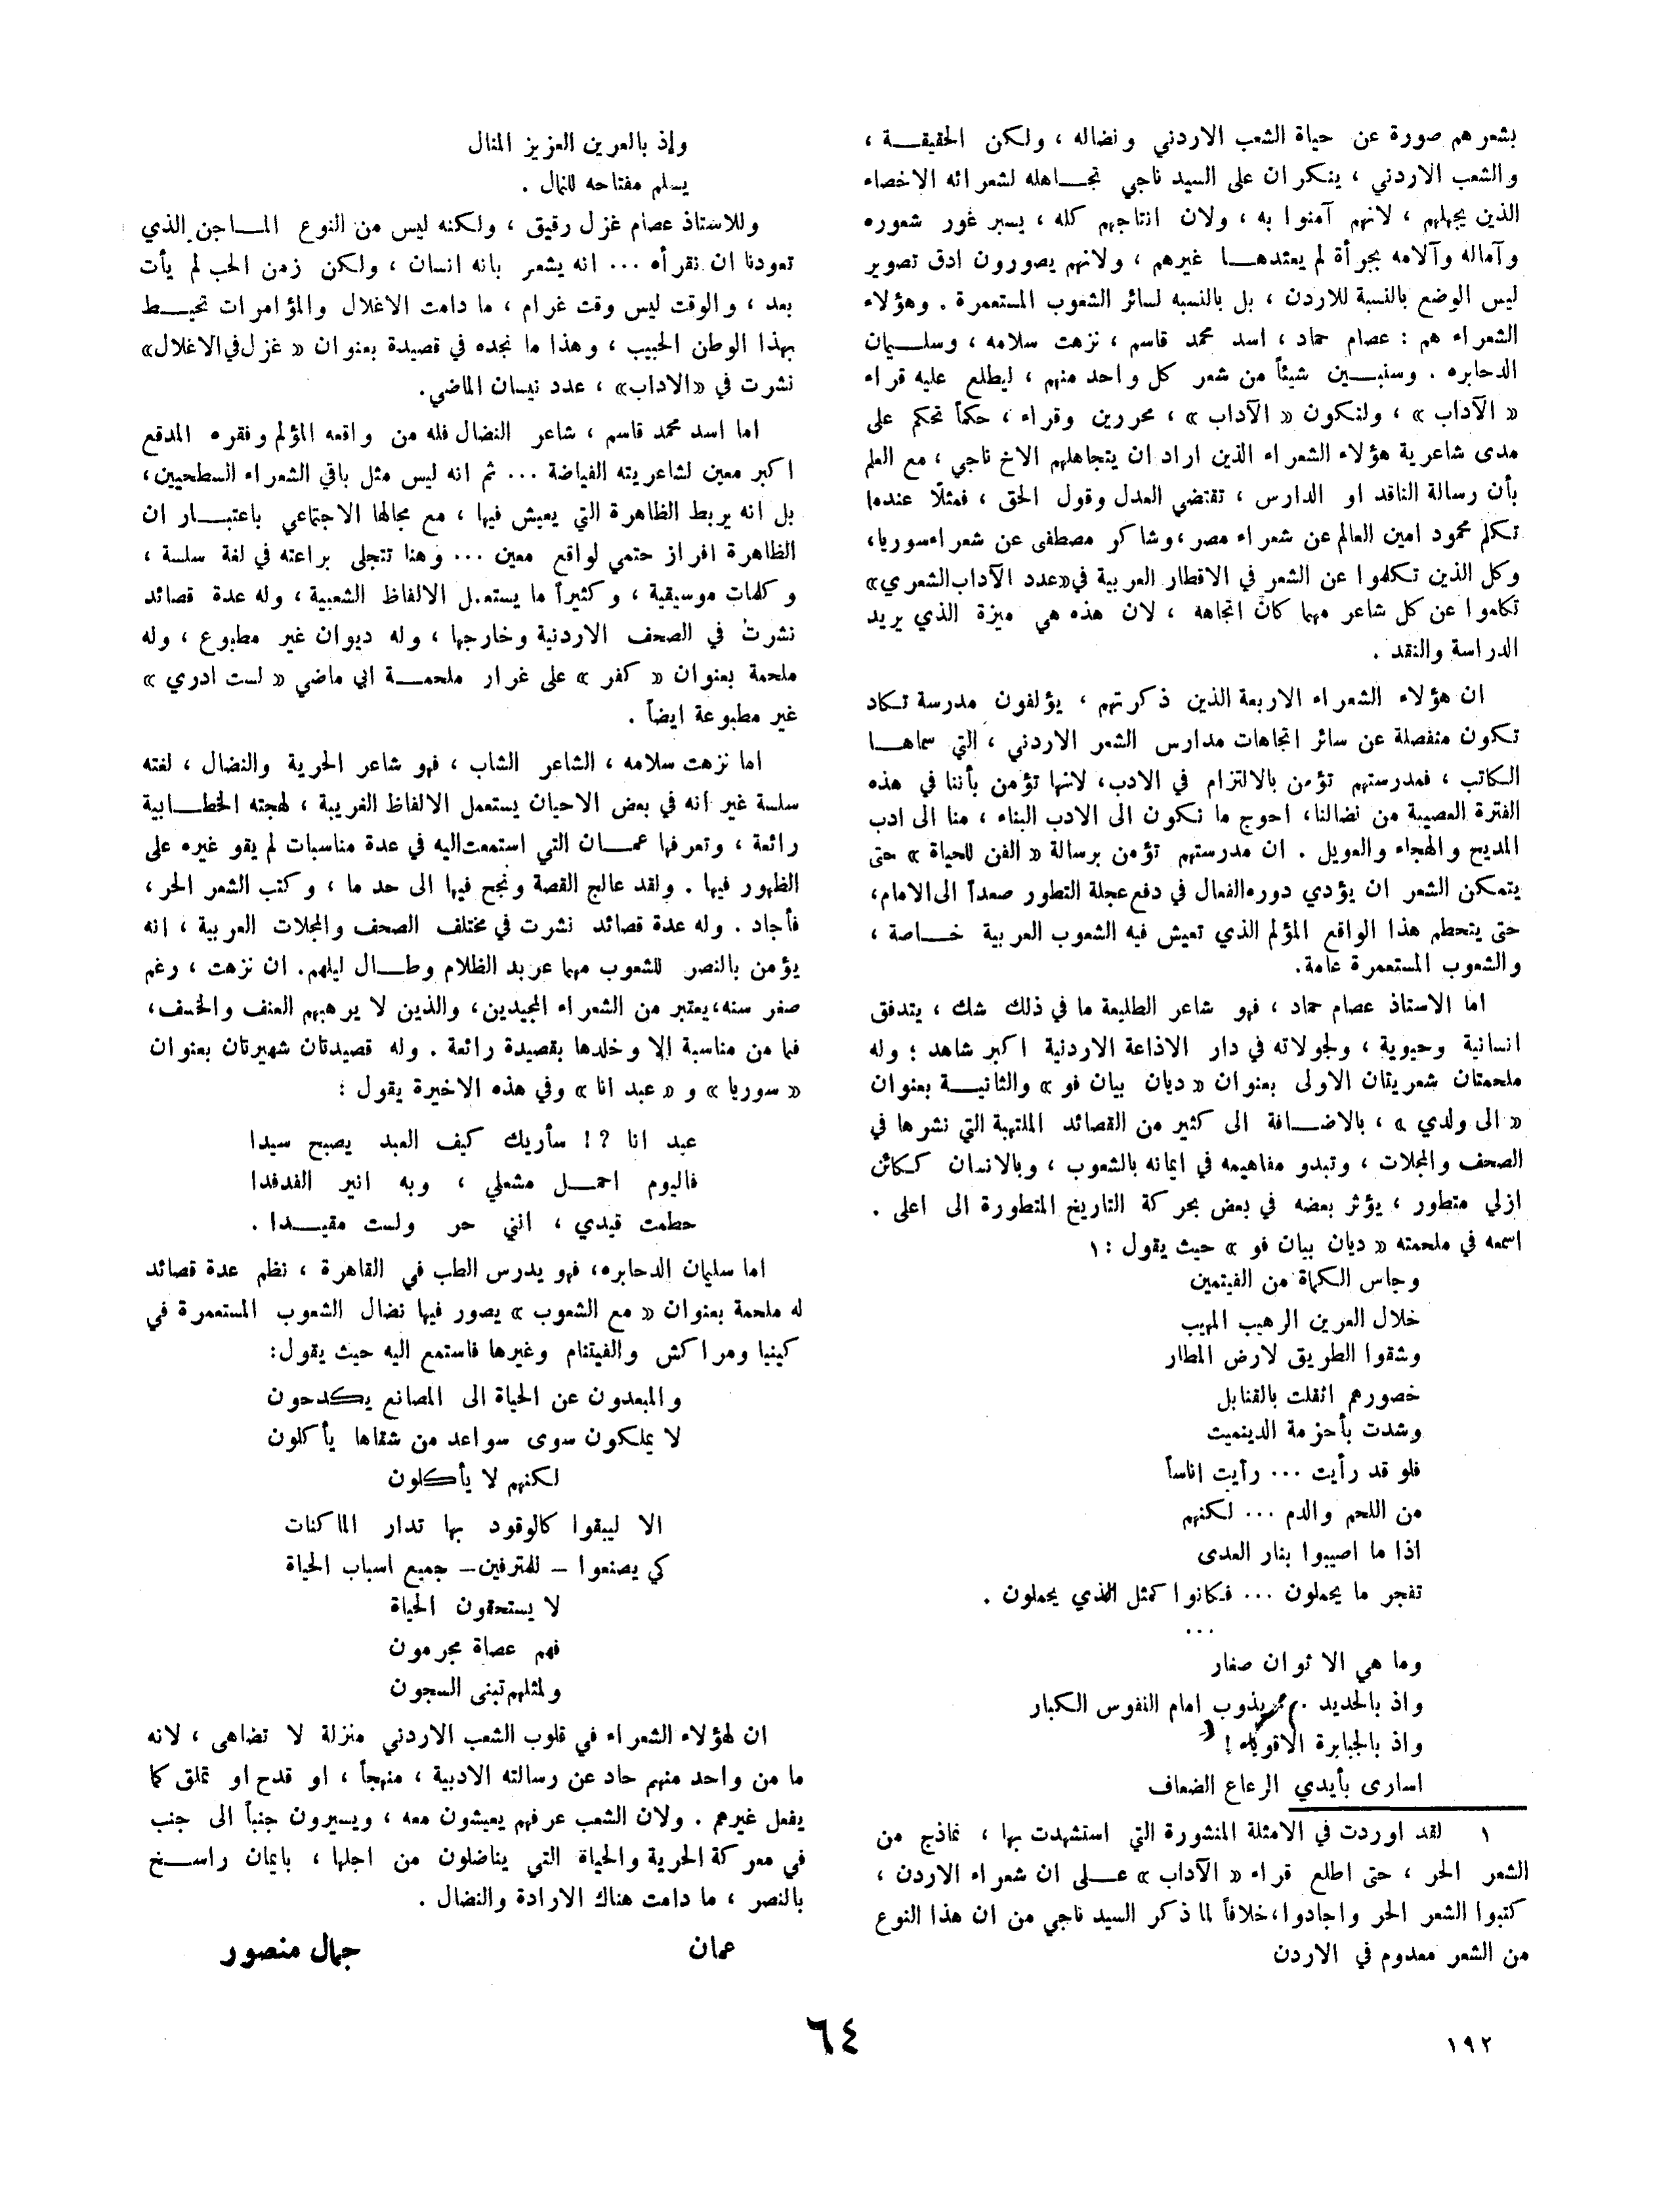 بشعرهم صورة عن حياة الشعب الاردني ونضاله ، ولكن الحقيقة ،
والشعب الاردني ، ينكران على السيد ناجي تجاهله لشعرائه الاخصاء
الذين يجهلهم ، لانهم آمنوا به ، ولان انتاجهم كله ، يسبر غور شعوره
وآماله وآلامه بجرأة لم يعتدها غيرهم ، ولانهم يصورون ادق تصوير
ليس الوضع بالنسبة للاردن ، بل بالنسبه لسائر الشعوب المستعمرة . وهؤلاء
الشعراء هم : عصام حماد ، اسد محمد قاسم ، نزهت سلامه ، وسليمان
الدحابره . وسنبين شيئاً من شعر كل واحد منهم ، ليطلع عليه قراء
« الآداب » ، ولتكون « الآداب » ، محررين وقراء ، حكماً تحكم على
مدى شاعرية هؤلاء الشعراء الذين اراد ان يتجاهلهم الاخ ناجي ، مع العلم
بأن رسالة الناقد او الدارس ، تقتضي العدل وقول الحق ، فمثلًا عندما
تكلم محمود امين العالم عن شعراء مصر ،وشاكر مصطفى عن شعراء سوريا،
وكل الذين تكلموا عن الشعر في الاقطار العربية في«عدد الآداب الشعري»
تكلموا عن كل شاعر مهما كان اتجاهه ، لان هذه هي ميزة الذي يريد
الدراسة والنقد .
ان هؤلاء الشعراء الاربعة الذين ذكرتهم ، يؤلفون مدرسة تكاد
تكون منفصلة عن سائر اتجاهات مدارس الشعر الاردني ، التي سماها
الكاتب ، فمدرستهم تؤمن بالالتزام في الادب، لانها تؤمن بأننا في هذه
الفترة العصيبة من نضالنا، احوج ما نكون الى الادب البناء ، منا الى ادب
المديح والهجاء والعويل . ان مدرستهم تؤمن برسالة « الفن للحياة » حتى
يتمكن الشعر ان يؤدي دوره الفعال في دفع عجلة التطور صعداً الى الامام،
حتى يتحطم هذا الواقع المؤلم الذي تعيش فيه الشعوب العربية خاصة ،
والشعوب المستعمرة عامة.
اما الاستاذ عصام حماد ، فهو شاعر الطليعة ما في ذلك شك ، يتدفق
انسانية وحيوية ، ولجولاته في دار الاذاعة الاردنية اكبر شاهد ؛ وله
ملحمتان شعريتان الاولى بعنوان « ديان بيان فو » والثانية بعنوان
« الى ولدي » ، بالاضافة الى كثير من القصائد الملتهبة التي نشرها في
الصحف والمجلات ، وتبدو مفاهيمه في ايمانه بالشعوب ، وبالانسان ككائن
ازلي متطور ، يؤثر بعضه في بعض بحركة التاريخ المتطورة الى اعلى .
اسمعه في ملحمته « ديان بيان فو » حيث يقول : ١
وجاس الكماة من الفيتمين
خلال العرين الرهيب المهيب
وشقوا الطريق لارض المطار
خصورهم اثقلت بالقنابل
وشدت بأحزمة الدينميت
فلو قد رأيت ... رأيت اناساً
من اللحم والدم ... لكنهم
اذا ما اصيبوا بنار العدى
تفجر ما يحملون ... فكانوا كمثل الذي يحملون .
...
وما هي الا ثوان صغار
واذ بالحديد يذوب امام النفوس الكبار
واذ بالجبابرة الاقوياء !
اسارى بأيدي الرعاع الضعاف
١ لقد اوردت في الامثلة المنشورة التي استشهدت بها ، نماذج من
الشعر الحر ، حتى اطلع قراء « الآداب » على ان شعراء الاردن ،
كتبوا الشعر الحر واجادوا،خلافاً لما ذكر السيد ناجي من ان هذا النوع
من الشعر معدوم في الاردن
وإذ بالعرين العزيز المنال
يسلم مفتاحه للنمال .
وللاستاذ عصام غزل رقيق ، ولكنه ليس من النوع الماجن الذي
تعودنا ان نقرأه ... انه يشعر بانه انسان ، ولكن زمن الحب لم يأت
بعد ، والوقت ليس وقت غرام ، ما دامت الاغلال والمؤامرات تحيط
بهذا الوطن الحبيب ، وهذا ما نجده في قصيدة بعنوان « غزل في الاغلال»
نشرت في «الاداب» ، عدد نيسان الماضي.
اما اسد محمد قاسم ، شاعر النضال فله من واقعه المؤلم وفقره المدقع
اكبر معين لشاعريته الفياضة ... ثم انه ليس مثل باقي الشعراء السطحيين،
بل انه يربط الظاهرة التي يعيش فيها ، مع مجالها الاجتماعي باعتبار ان
الظاهرة افراز حتمي لواقع معين ... وهنا تتجلى براعته في لغة سلسة ،
وكلمات موسيقية ، وكثيراً ما يستعمل الالفاظ الشعبية ، وله عدة قصائد
نشرت في الصحف الاردنية وخارجها ، وله ديوان غير مطبوع ، وله
ملحمة بعنوان « كفر » على غرار ملحمة ابي ماضي « لست ادري »
غير مطبوعة ايضاً .
اما نزهت سلامه ، الشاعر الشاب ، فهو شاعر الحرية والنضال ، لغته
سلسة غير انه في بعض الاحيان يستعمل الالفاظ الغريبة ، لهجته الخطابية
رائعة ، وتعرفها عمان التي استمعت اليه في عدة مناسبات لم يقو غيره على
الظهور فيها . ولقد عالج القصة ونجح فيها الى حد ما ، وكتب الشعر الحر،
فأجاد . وله عدة قصائد نشرت في مختلف الصحف والمجلات العربية ، انه
يؤمن بالنصر للشعوب مهما عربد الظلام وطال ليلهم. ان نزهت ، رغم
صغر سنه،يعتبر من الشعراء المجيدين، والذين لا يرهبهم العنف والخسف،
فما من مناسبة إلا وخلدها بقصيدة رائعة . وله قصيدتان شهيرتان بعنوان
« سوريا » و « عبد انا » وفي هذه الاخيرة يقول :
عبد انا ؟! سأريك كيف العبد يصبح سيدا
فاليوم احمل مشعلي ، وبه انير الفدفدا
حطمت قيدي ، انني حر ولست مقيدا .
اما سليمان الدحابره، فهو يدرس الطب في القاهرة ، نظم عدة قصائد
له ملحمة بعنوان « مع الشعوب » يصور فيها نضال الشعوب المستعمرة في
كينيا ومراكش والفيتنام وغيرها فاستمع اليه حيث يقول:
والمبعدون عن الحياة الى المصانع يكدحون
لا يملكون سوى سواعد من شقاها يأكلون
لكنهم لا يأكلون
الا ليبقوا كالوقود بها تدار الماكنات
كي يصنعوا – للمترفين – جميع اسباب الحياة
لا يستحقون الحياة
فهم عصاة مجرمون
ولمثلهم تبنى السجون
ان لهؤلاء الشعراء في قلوب الشعب الاردني منزلة لا تضاهى ، لانه
ما من واحد منهم حاد عن رسالته الادبية ، منهجاً ، او قدح او تملق كما
يفعل غيرهم . ولان الشعب عرفهم يعيشون معه ، ويسيرون جنباً الى جنب
في معركة الحرية والحياة التي يناضلون من اجلها ، بايمان راسخ
بالنصر ، ما دامت هناك الارادة والنضال .
عمان جمال منصور
٦٤
١٩٢